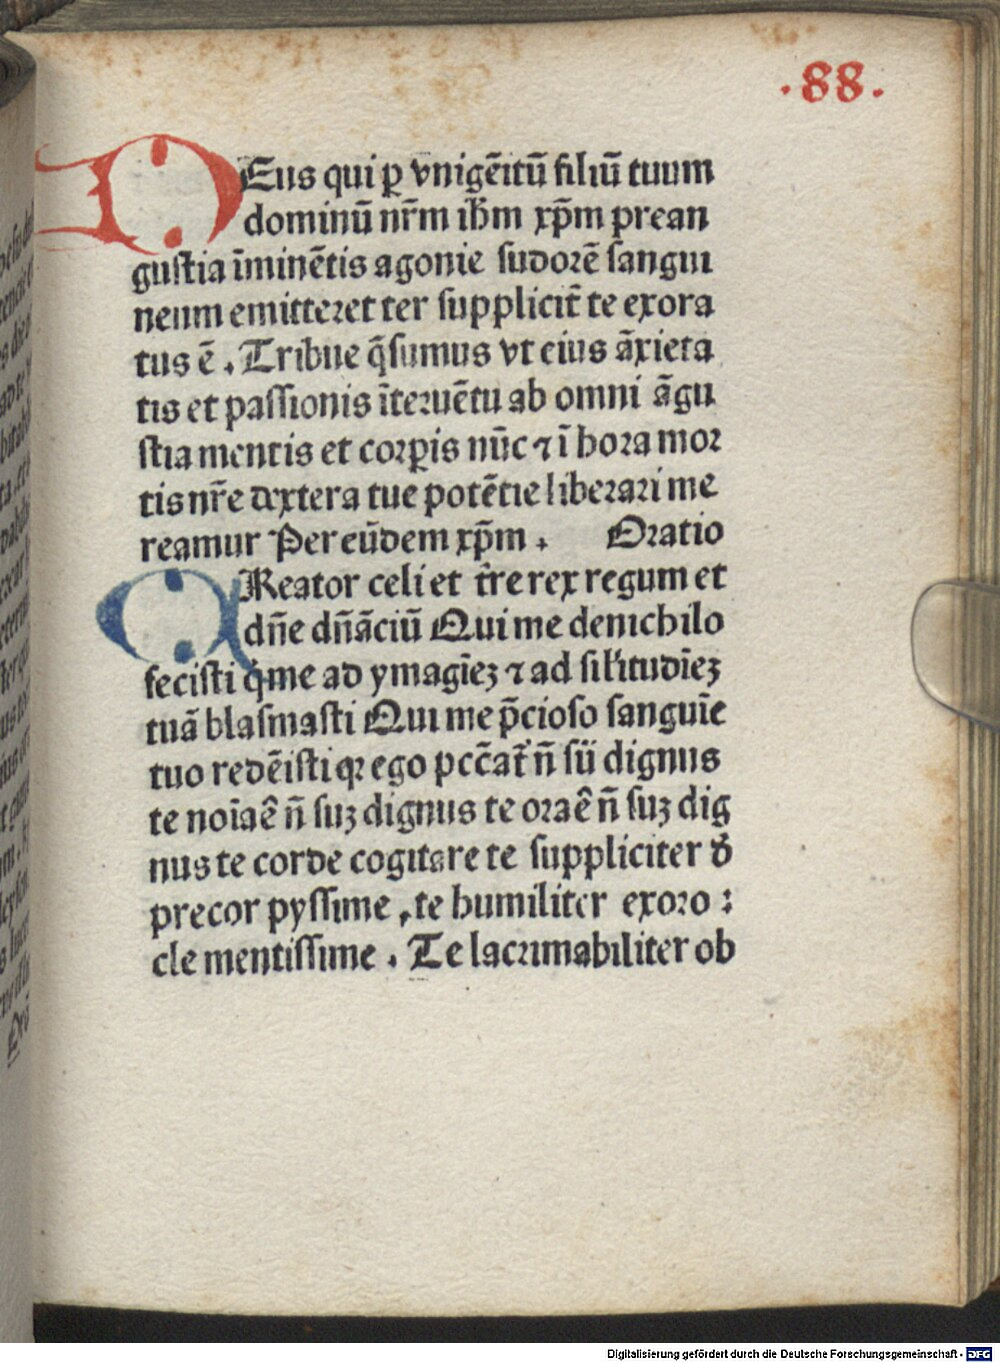 .88.
DEus qui ꝑ vnigēitū filiū tuum
dominū nr̄m ih̄m xp̄m prean
gustia īminētis agonie sudorē sangui
neum emitteret ter supplicit̄ te exora
tus ē. Tribue q̄sumus vt eius āxieta
tis et passionis īteruētu ab omni āgu
stia mentis et corꝑis nūc ⁊ ī hora mor
tis nr̄e dextera tue potētie liberari me
reamur Per eūdem xp̄m. Oratio
CReator celi et t̄re rex regum et
dn̄e dn̄āciū Qui me de nichilo
fecisti q̇ me ad ymagīeꝫ ⁊ ad sil'itudīeꝫ
tuā blasmasti Qui me p̄cioso sanguīe
tuo redēisti qꝛ ego pcc̄at̄ n̄ sū dignus
te noīaē n̄ suꝫ dignus te oraē n̄ suꝫ dig
nus te corde cogitare te suppliciter d̄
precor pyssime, te humiliter exoro:
cle mentissime. Te lacrimabiliter ob
Digitalisierung gefördert durch die Deutsche Forschungsgemeinschaft - DFG